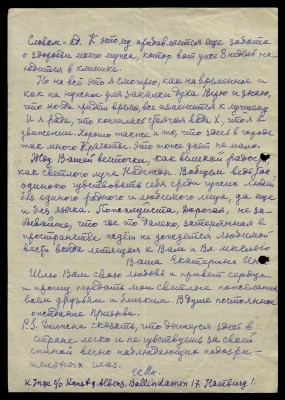 Словом - ад. К этому прибавляется еще забота
о здоровьи моего мужа, котор. вот уже 8 недель на-
ходится в клинике.
Но на всё это я смотрю, как на временное и
как на нужное для закалки духа. Верю и знаю,
что когда придет время, все изменится к лучшему.
И я рада, что кончилась стоячая вода и, что я в
движении. Хорошо также и то, что здесь в городе
так много красоты. Это тоже дает не мало.
Жду Вашей весточки, как великой радости,
как светлого луча Надежды. Вообщем ведь так
одиноко чувствовать себя среди чужих людей
без единого родного и любимого лица, да еще
и без языка. Пожалуйста, дорогая, не за-
бывайте, что где-то далеко, затерянная в
пространстве ждет не дождется людской
вести всегда летящая к Вам и Вл. мыслью
Ваша Екатерина
Шлю Вам свою любовь и привет сердца
и прошу передать мои светлые пожелания
всем друзьям и близким. В душе постоянное
ожидание призыва.
P.S. Должна сказать, что дышется здесь в
стране легко и не чувствуешь за своей
спиной вечно наблюдающих подозри-
тельных глаз.
K. Inge c/o Albers, Ballindamm 17. Hamburg 1.